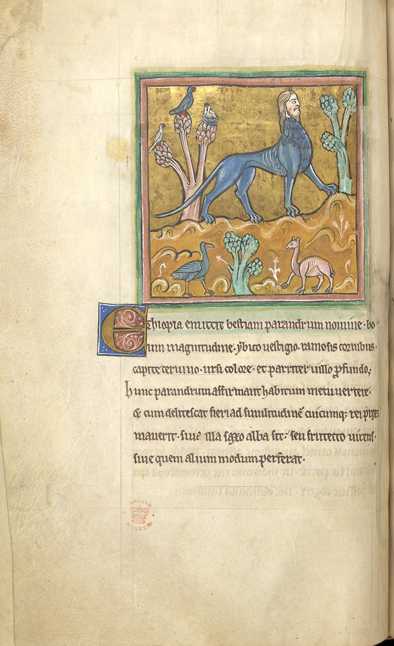 Ethiopia emittit bestiam parandrum nomine. bo
um magnitudine. ybico uestigio. ramosis cornibus.
capite ceruino. ursi colore. et pariter uillo profundo;
hunc parandrum affirmant habitum metu uertere.
& cum delitescat fieri ad similitudinē cuicumq; rei
mauerit. siue illa saxo alba sit. seu frutecto uirens.
siue quem alium modum perferat.